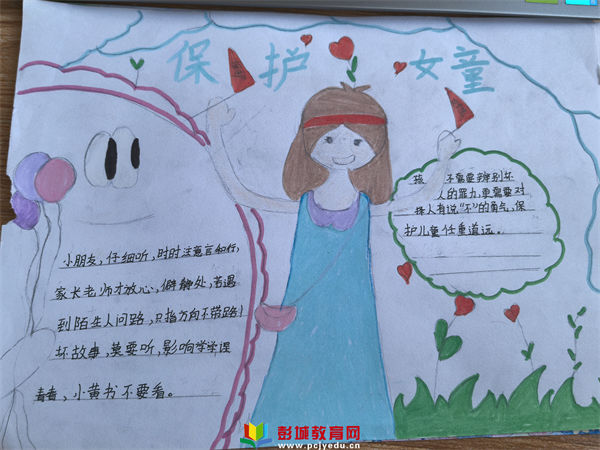 保护 女童
小朋友，仔细听，时时注意言和行，
家长老师才放心，僻静处，若遇
到陌生人问路，只指方向不带路！
坏故事，莫要听，影响学学误
青春，小黄书不要看。
孩 不需要辨别坏
人的罪力，更需要对
择人有说“不”的勇气，保
护儿童任重道远。
彭城教育网
www.pcjyedu.cn